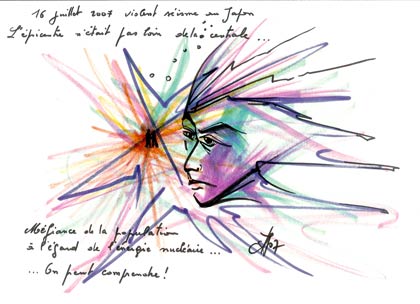 16 juillet 2007 violent séisme au Japon
L'épicentre n'était pas loin de la centrale ...
Méfiance de la population
à l'égard de l'énergie nucléaire ...
... On peut comprendre !